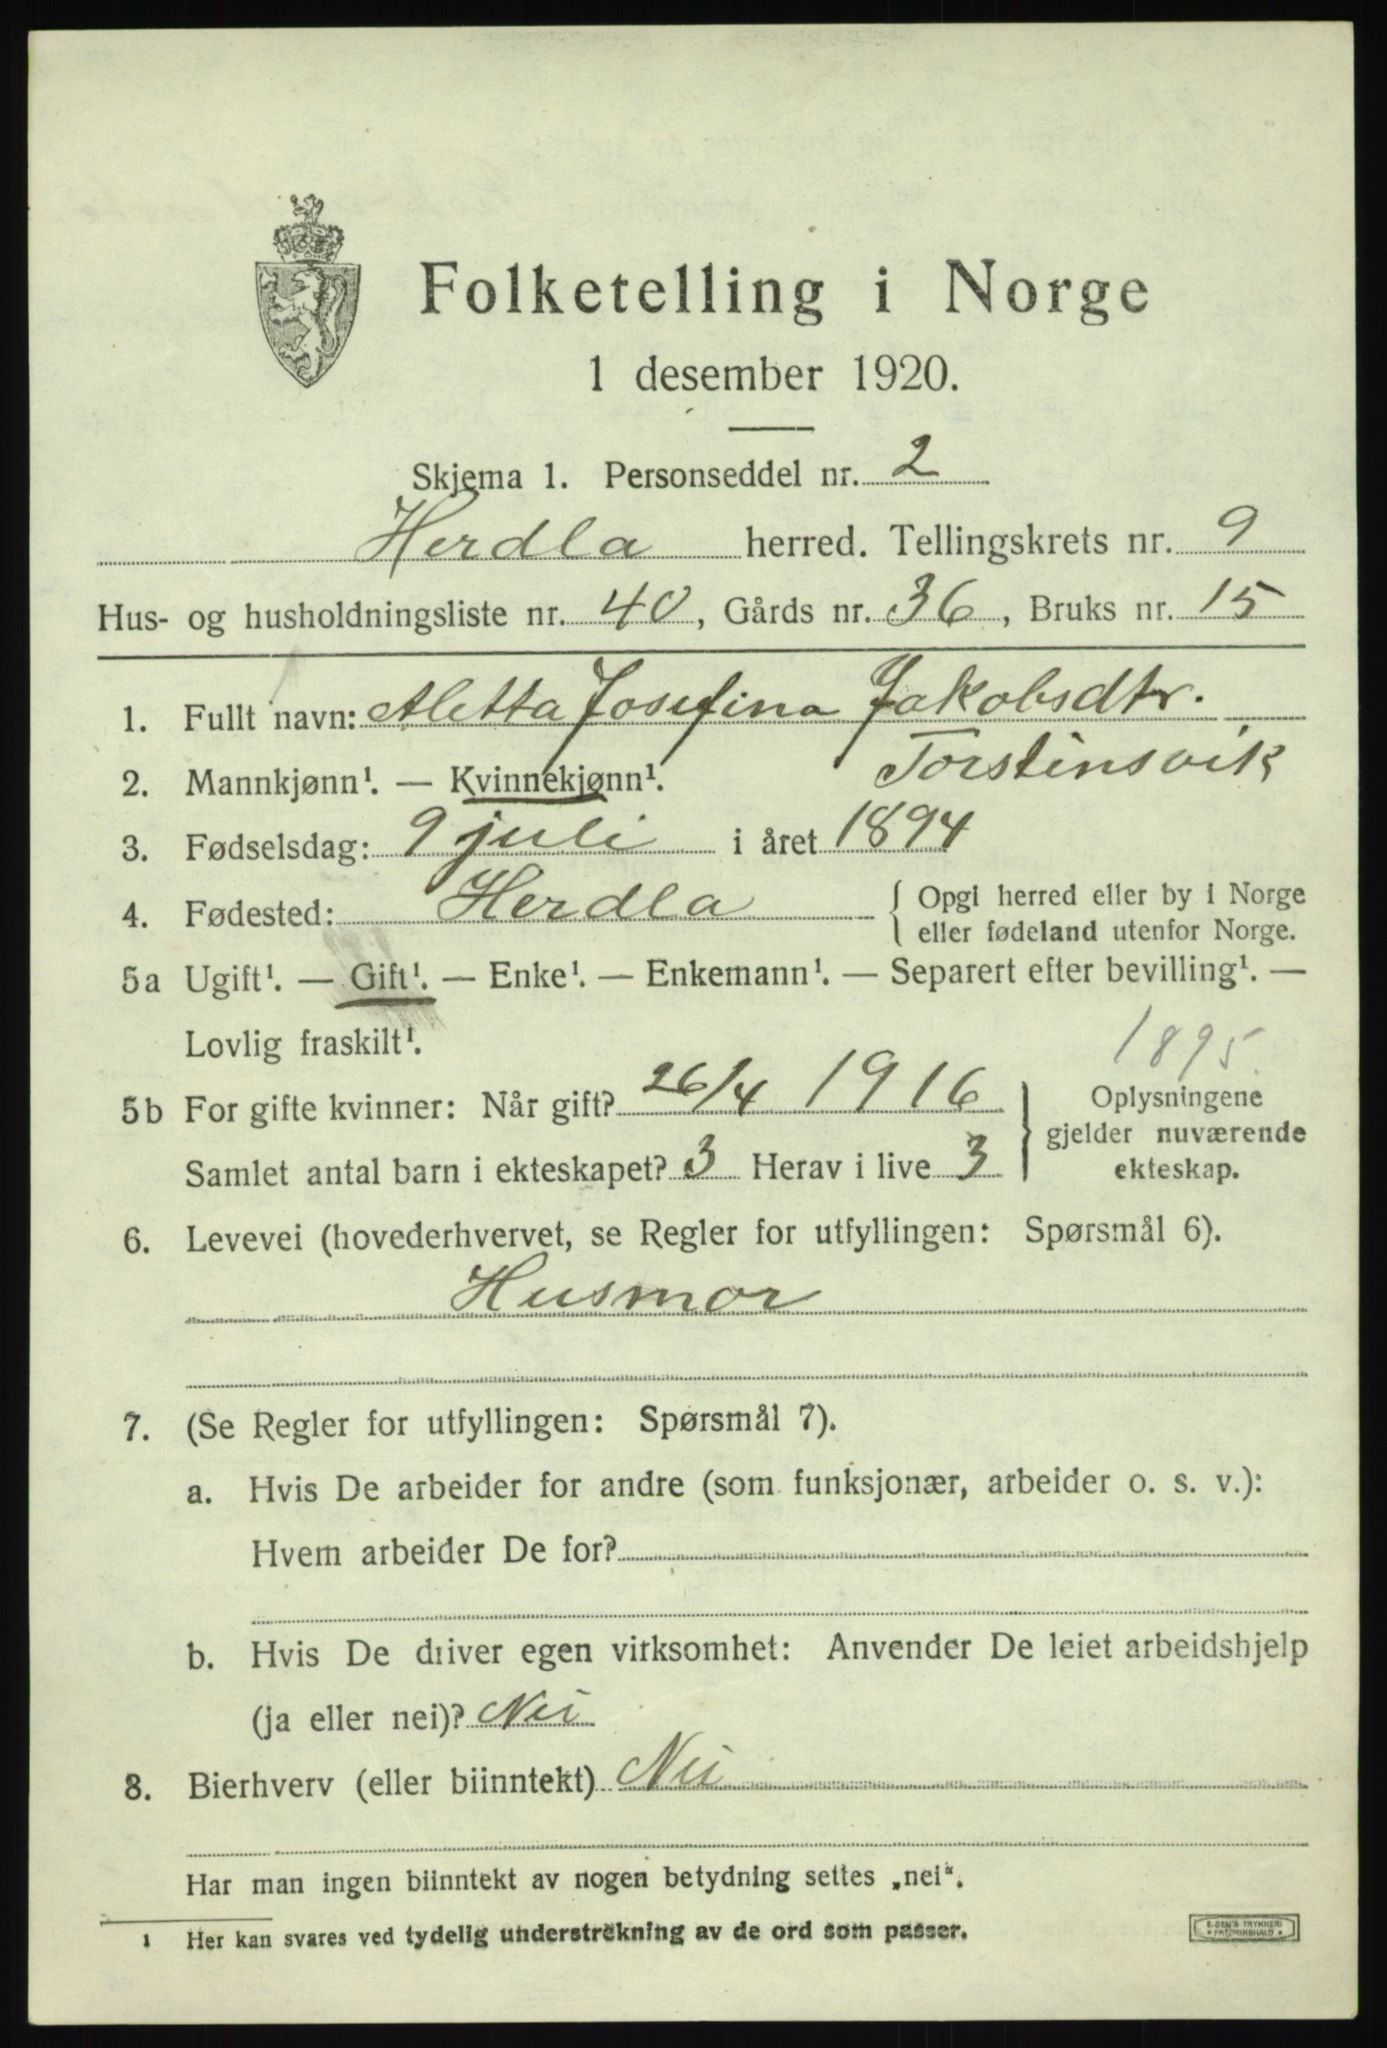 Folketelling i Norge
1 desember 1920.
Skjema 1. Personseddel nr. 2
Herdla herred. Tellingskrets nr. 9
Hus- og husholdningsliste nr. 40, Gårds nr. 36, Bruks nr. 15
1. Fullt navn: Aletta Josefina Jakobsdtr.
Torsteinsvik
2. Mannkjønn¹. — Kvinnekjønn¹.
3. Fødselsdag: 9 juli i året 1894
4. Fødested: Herdla { Opgi herred eller by i Norge
eller fødeland utenfor Norge.
5a Ugift¹. — Gift¹. — Enke¹. — Enkemann¹. — Separert efter bevilling¹. —
Lovlig fraskilt¹.
1895
5b For gifte kvinner: Når gift? 26/4 1916
Samlet antal barn i ekteskapet? 3 Herav i live 3
} Oplysningene
gjelder nuværende
ekteskap.
6. Levevei (hovederhvervet, se Regler for utfyllingen: Spørsmål 6).
Husmor
7. (Se Regler for utfyllingen: Spørsmål 7).
a. Hvis De arbeider for andre (som funksjonær, arbeider o. s. v.):
Hvem arbeider De for?
b. Hvis De driver egen virksomhet: Anvender De leiet arbeidshjelp
(ja eller nei)? Nei
8. Bierhverv (eller biinntekt) Nei
Har man ingen biinntekt av nogen betydning settes „nei“.
1 Her kan svares ved tydelig understrekning av de ord som passer.